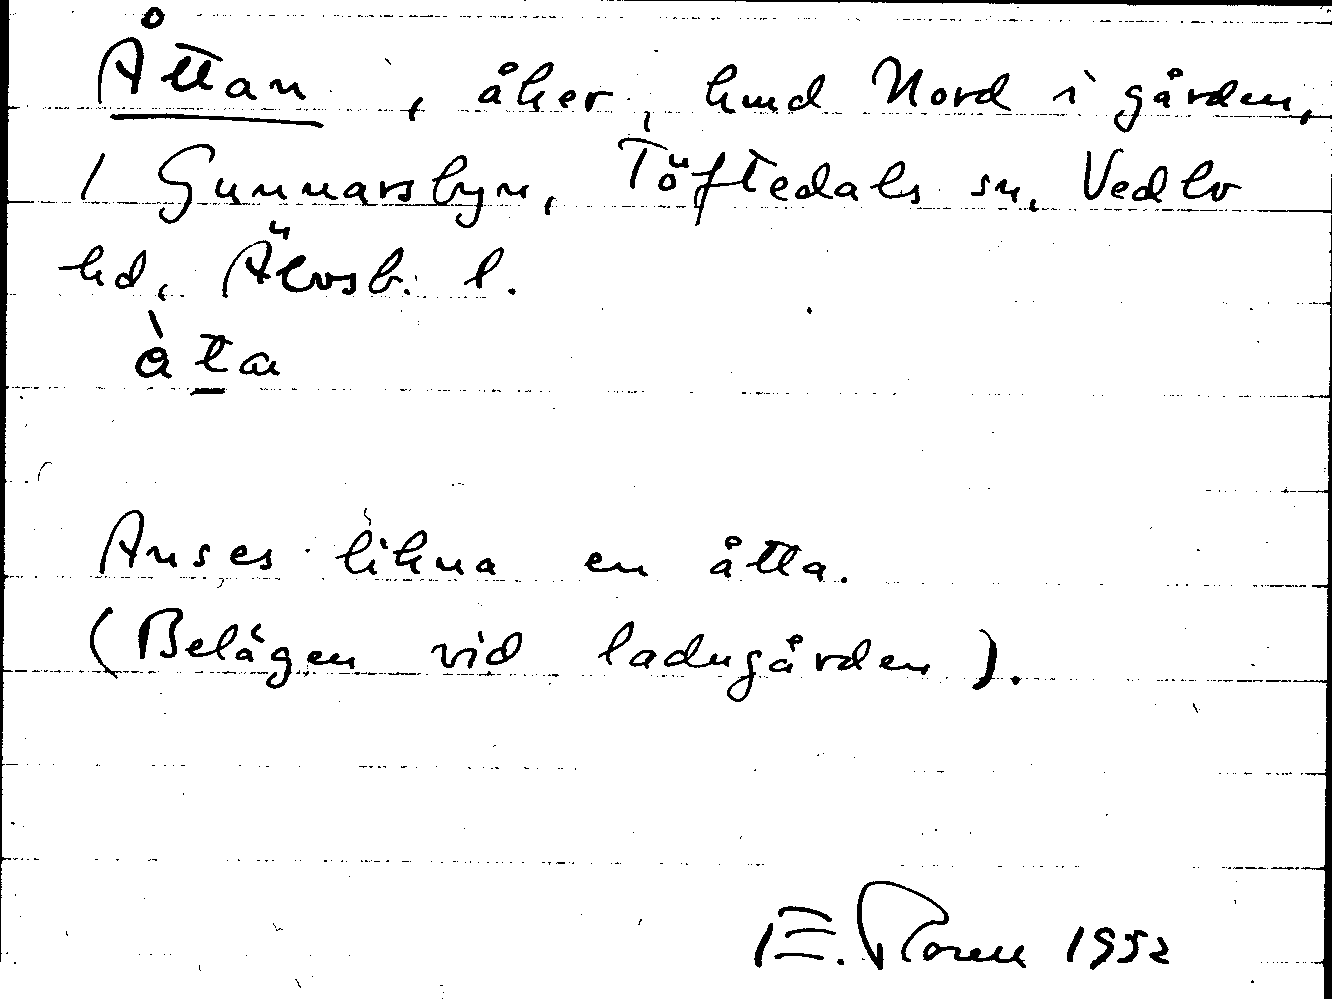 Åttan, åker, hmd Nord i gården,
1 Gunnarsbyn, Töftedals sn, Vedbo
hd, Älvsb. l.
Anses likna en åtta.
(Belägen vid ladugården).
E. Floren 1952